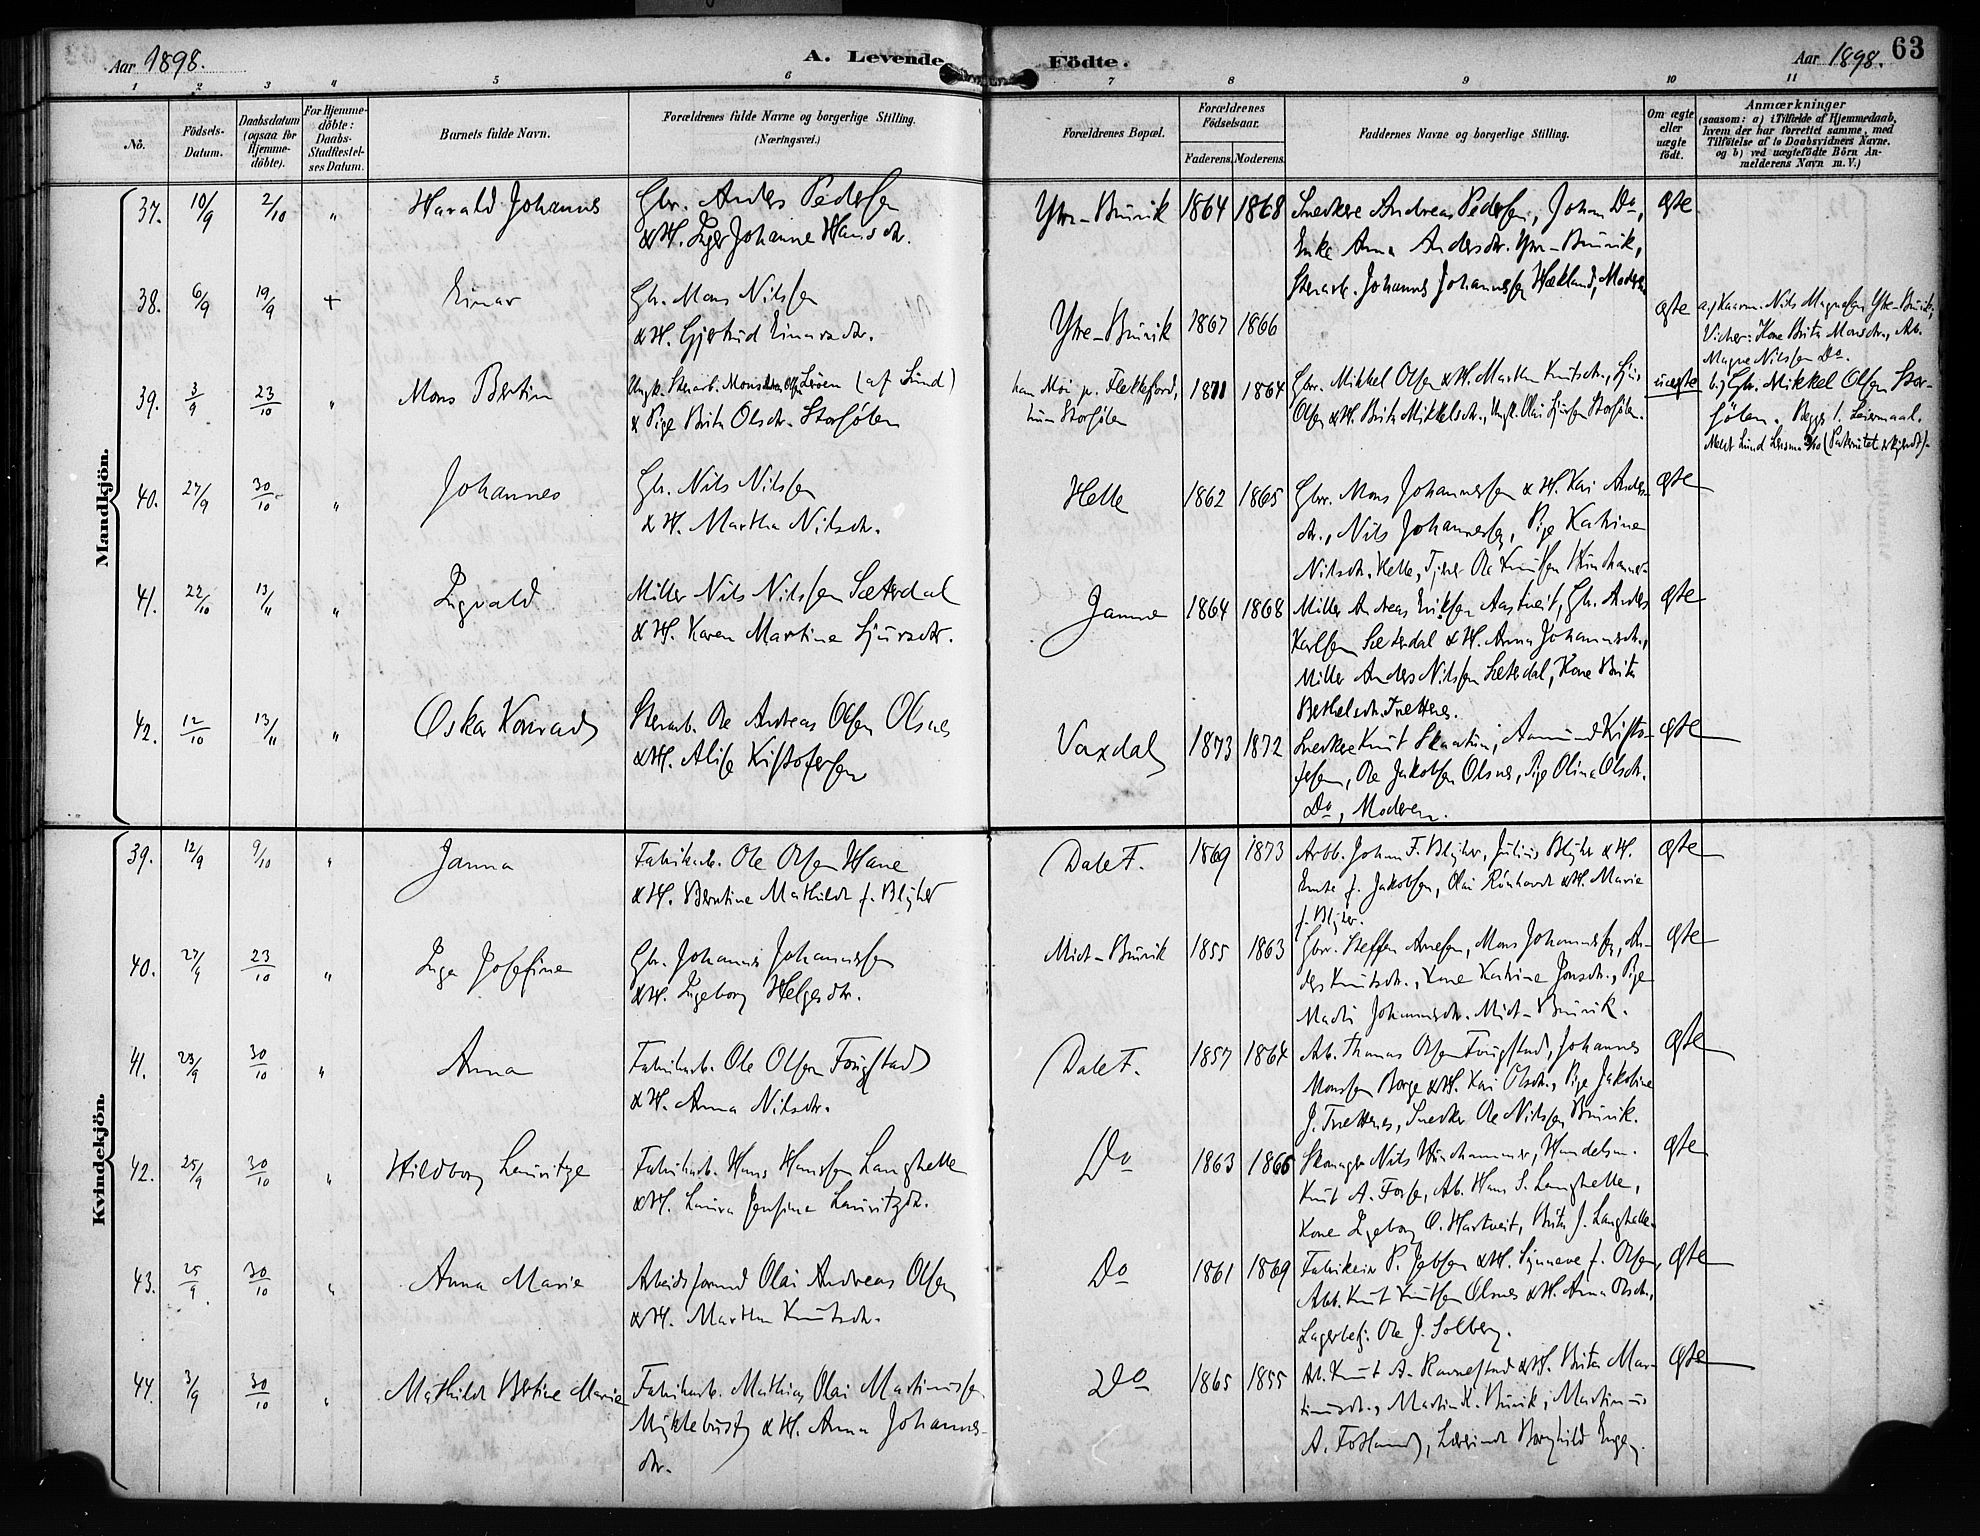 Aar 1898.
A. Levende Födte.
Aar 1898.
63
1 2 3 4 5 6 7 8 9 10 11
No.
Födsels-Datum.
Daabsdatum (ogsaa for Hjemme-döbte).
For Hjemme-döbte: Daabs-Stadfæstel-ses Datum.
Barnets fulde Navn.
Forældrenes fulde Navne og borgerlige Stilling. (Næringsvei.)
Forældrenes Bopæl.
Forældrenes Födselsaar.
Faderens. Moderens.
Faddernes Navne og borgerlige Stilling.
Om ægte eller uægte födt.
Anmærkninger (saasom: a) i Tilfælde af Hjemmedaab, hvem der har forrettet samme, med Tilföielse af to Daabsvidners Navne, og b) ved uægtefödte Börn An-melderens Navn m. V.)
Mandkjön.
37. 10/9 2/10 " Harald Johannes
Gbr. Anders Pedersen
& H. Inger Johanne Hansdtr.
Ytre-Bruvik 1864 1868
Snedkere Andreas Pedersen, Johan Do,
Enke Anna Andersdtr. Ytre-Bruvik,
Stenarb. Johannes Johannessen Hækland, Moderen
ægte
38. 6/9 19/9 + Einar
Gbr. Mons Nilssen
& H. Gjertrud Einarsdtr.
Ytre-Bruvik 1867 1866
ægte
a) Kaarm. Nils Magnesen Ytre-Bruvik;
Vidner: Kone Brita Monsdtr., Arb.
Magne Nilssen Do.
39. 3/9 23/10 " Mons Bertin
Ungk. Stenarb. Mons Leröen (af Sund)
& Pige Brita Olsdtr. Storfölen
han Moi pr. Flekkefjord,
hun Storfölen
1871 1864
Gbr. Mikkel Olsen & H. Martha Knutsdtr., Sjur
Olsen & H. Brita Mikkelsdtr., Ungk. Olai Sjursen Storfölen.
uægte
b) Gbr. Mikkel Olsen Stor-
fölen. Begges 1. Leiermaal.
40. 27/9 30/10 " Johannes
Gbr. Nils Nilssen
& H. Martha Nilsdtr.
Helle 1862 1865
Gbr. Mons Johannessen & H. Kari Anders-
dtr., Nils Johannessen, Pige Katrine
Nilsdtr. Helle, Tjener Ole Knutsen
ægte
41. 22/10 13/11 " Ingvald
Miller Nils Nilssen Sæterdal
& H. Karen Martine Sjursdtr.
Janne 1864 1868
Miller Andreas Eriksen Aastveit, Gbr. Anders
Karlsen Sæterdal & H. Anna Johannesdtr.,
Miller Anders Nilssen Sæterdal, Kone Brita
Bethelsdtr. Trettenes.
ægte
42. 12/10 13/11 " Oskar Konrad
Stenarb. Ole Andreas Olsen Olsnes
& H. Alise Kristofersen
Vaxdal 1873 1872
Snedkere Knut Skaatun, Aamund Kristo-
fersen, Ole Jakobsen Olsnes, Pige Olina Olsdtr.
Do, Moderen.
ægte
Kvindekjön.
39. 12/9 9/10 " Janna
Fabrikarb. Ole Olsen Hane
& H. Berntine Mathilde f. Blyher
Dale F. 1869 1873
Arbb. Johan F. Blyher, Julius Blyher & H.
f. Jakobsen, Olai Rönhovde & H. Marie
f. Blyher.
ægte
40. 27/9 23/10 " Inga Josefine
Gbr. Johannes Johannessen
& H. Ingeborg Helgesdtr.
Midt-Bruvik 1855 1863
Gbr. Steffen Arnesen, Mons Johannessen, An-
ders Knutsdtr., Kone Katrine Jonsdtr., Pige
Marta Johannesdtr. Midt-Bruvik.
ægte
41. 23/9 30/10 " Anna
Fabrikarb. Ole Olsen Fougstad
& H. Anna Nilsdtr.
Dale F. 1857 1864
Arb. Thomas Olsen Fougstad, Johannes
Monssen Borge & H. Kari Olsdtr., Pige Jakobine
J. Trettenes, Snedker Ole Nilssen Bruvik.
ægte
42. 25/9 30/10 " Hildborg Lauritze
Fabrikarb. Hans Hanssen Langhelle
& H. Laura Josefine Lauritzdtr.
Do 1863 1865
Skomager Nils , Handelsm.
Knut A. Fosse, Arb. Hans S. Langhelle,
Kone Ingeborg O. Hartveit, Brita J. Langhelle.
ægte
43. 25/9 30/10 " Anna Marie
Arbeidsformand Olai Andreas Olsen
& H. Martha Knutsdtr.
Do 1861 1869
Fabrikeier P. Jebsen & H. Synneve f. Olsen,
Arb. Knut Knutsen Olsnes & H. Anna Olsdtr.,
Lagerbef. Ole J. Solberg.
ægte
44. 3/9 30/10 " Mathilde Bertine Marie
Fabrikarb. Mathias Olai Martinussen
Myklebust & H. Anna Johannes-
dtr.
Do 1865 1855
Arb. Knut A. Ravnestad & H. Brita Mar-
tinusdtr., Martin K. Bruvik, Martinus
A. Fotland, Lærerinde Borghild
ægte